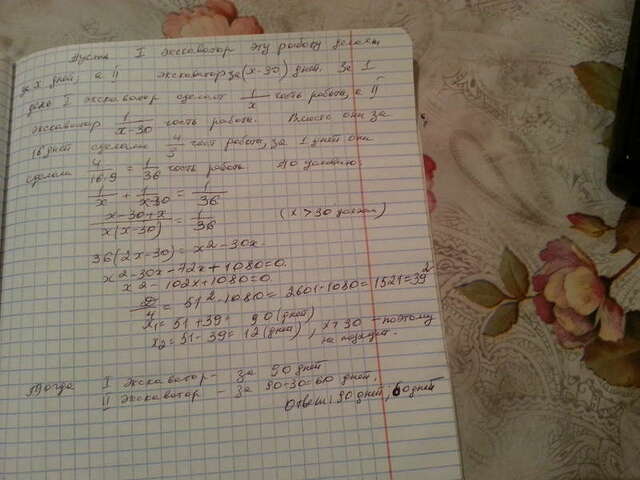 Пусть I экскаватор эту работу делает
за x дней, а II экскаватор за (x-30) дней. За 1
день I экскаватор сделает 1/x часть работы, а II
экскаватор 1/(x-30) часть работы. Вместе они за
16 дней сделали 4/9 част работы, за 1 дней они
сделали 4/(16·9) = 1/36 часть работы. По условию:
1/x + 1/(x-30) = 1/36
(x-30+x)/(x(x-30)) = 1/36 (x > 30 должен)
36(2x-30) = x²-30x
x²-30x-72x+1080=0.
x²-102x+1080=0.
D/4 = 51²-1080 = 2601-1080 = 1521 = 39²
x₁ = 51+39 = 90 (дней)
x₂ = 51-39 = 12 (дней), x > 30 - поэтому
не подходит.
Тогда I экскаватор - за 90 дней
II экскаватор - за 90-30=60 дней.
Ответ: 90 дней; 60 дней